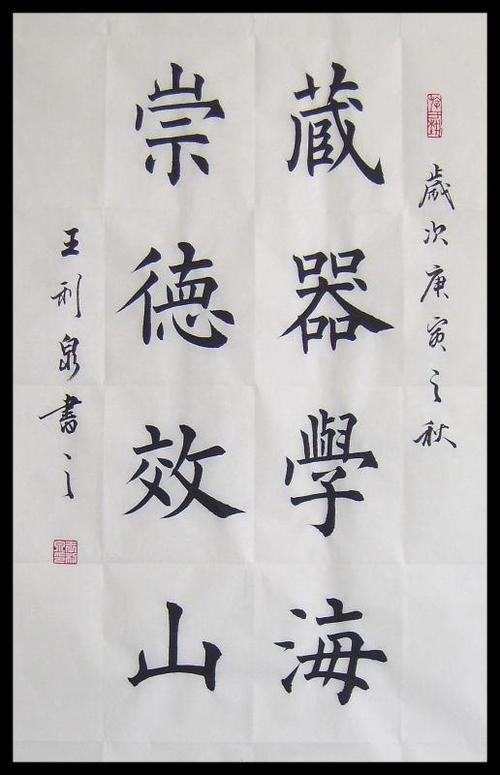 歲次庚寅之秋
蔵器學海
崇徳效山
王利泉書之